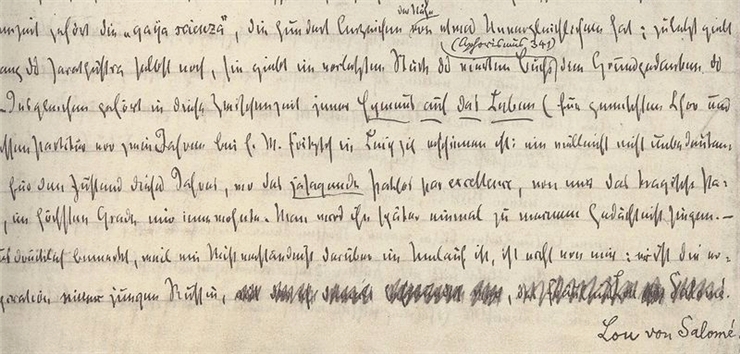 der Nähe
nzeit gehört die „gaya scienza“, die hundert Anzeichen von etwas Unvergleichlichem hat; zuletzt giebt
(Aphorismus 341)
ang des Zarathustra selbst noch, sie giebt im vorletzten Stück des vierten Buchs den Grundgedanken des
Insgleichen gehört in diese Zwischenzeit jener Hymnus auf das Leben (für gemischten Chor und
ssen Partitur vor zwei Jahren bei E. W. Fritzsch in Leipzig erschienen ist: ein vielleicht nicht unbedeuten-
für den Zustand dieses Jahres, wo das jasagende Pathos par excellence, von mir das tragische Pa-
, im höchsten Grade mir innewohnte. Man wird ihn später einmal zu meinem Gedächtniß singen. —
ausdrücklich bemerkt, weil ein Mißverständniß darüber im Umlauf ist, ist nicht von mir: er ist die er-
piration einer jungen Russin, Salomé.
Lou von Salomé.